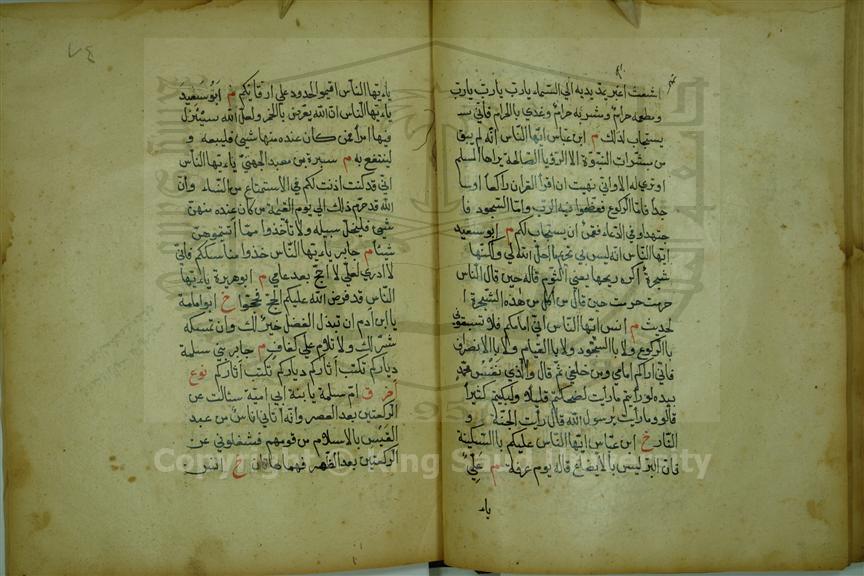 اشعث اغبر يمد يديه الي السماء يارب يارب يارب يارب
ومطعمه حرام ومشربه حرام وغذي بالحرام فاني يسـ
يستجاب لذلك م ابن عباس ايها الناس انه لم يبق
من مبشرات النبوة الا الرؤيا الصالحة يراها المسلم
او تري له الا واني نهيت ان اقرا القران راكعا او سا
جدا فاما الركوع فعظموا فيه الرب واما السجود فا
جتهدوا في الدعاء فقمن ان يستجاب لكم م ابو سعيد
ايها الناس انه ليس بي تحريم ما احل الله لي ولكنها
شجرة اكره ريحها يعني الثوم قاله حين قال الناس
حرمت حرمت حين قال من اكل من هذه الشجرة ا
لحديث م انس ايها الناس اني امامكم فلا تسبقوني
بالركوع ولا بالسجود ولا بالقيام ولا بالانصراف
فاني اراكم امامي ومن خلفي ثم قال والذي نفس محمد
بيده لو رايتم ما رايت لضحكتم قليلا ولبكيتم كثيرا
قالوا وما رايت يا رسول الله قال رايت الجنة و
النار خ ابن عباس ايها الناس عليكم بالسكينة
فان البر ليس بالايضاع قاله يوم عرفة م علي
ياء
٨٤
ياءيتها الناس اقيموا الحدود علي ارقايكم م ابو سعيد
ياءيتها الناس ان الله يعرض بالخمر ولعل الله سينزل
فيها امرا فمن كان عنده منها شيئ فليبعه و
لينتفع به م سبرة بن معبد الجهني ياءيتها الناس
اني قد كنت اذنت لكم في الاستمتاع من النساء وان
الله قد حرم ذلك الي يوم القيمة فمن كان عنده منهن
شيئ فليخل سبيله ولا تأخذوا مما اتيتموهن
شيئا م جابر ياءيتها الناس خذوا مناسككم فاني
لا ادري لعلي لا احج بعد عامي م ابو هريرة ياءيتها
الناس قد فرض الله عليكم الحج فحجوا خ ابو امامة
يا ابن ادم ان تبذل الفضل خير لك وان تمسكه
شر لك ولا تلام علي كفاف م جابر بني سلمة
دياركم تكتب اثاركم دياركم تكتب اثاركم نوع
اخر ق ام سلمة يا بنة ابي امية سئالت عن
الركعتين بعد العصر وانه اتاني اناس من عبد
القيس بالاسلام من قومهم فشغلوني عن
الركعتين بعد الظهر فهما هاتان خ انس
Copyright © King Saud University